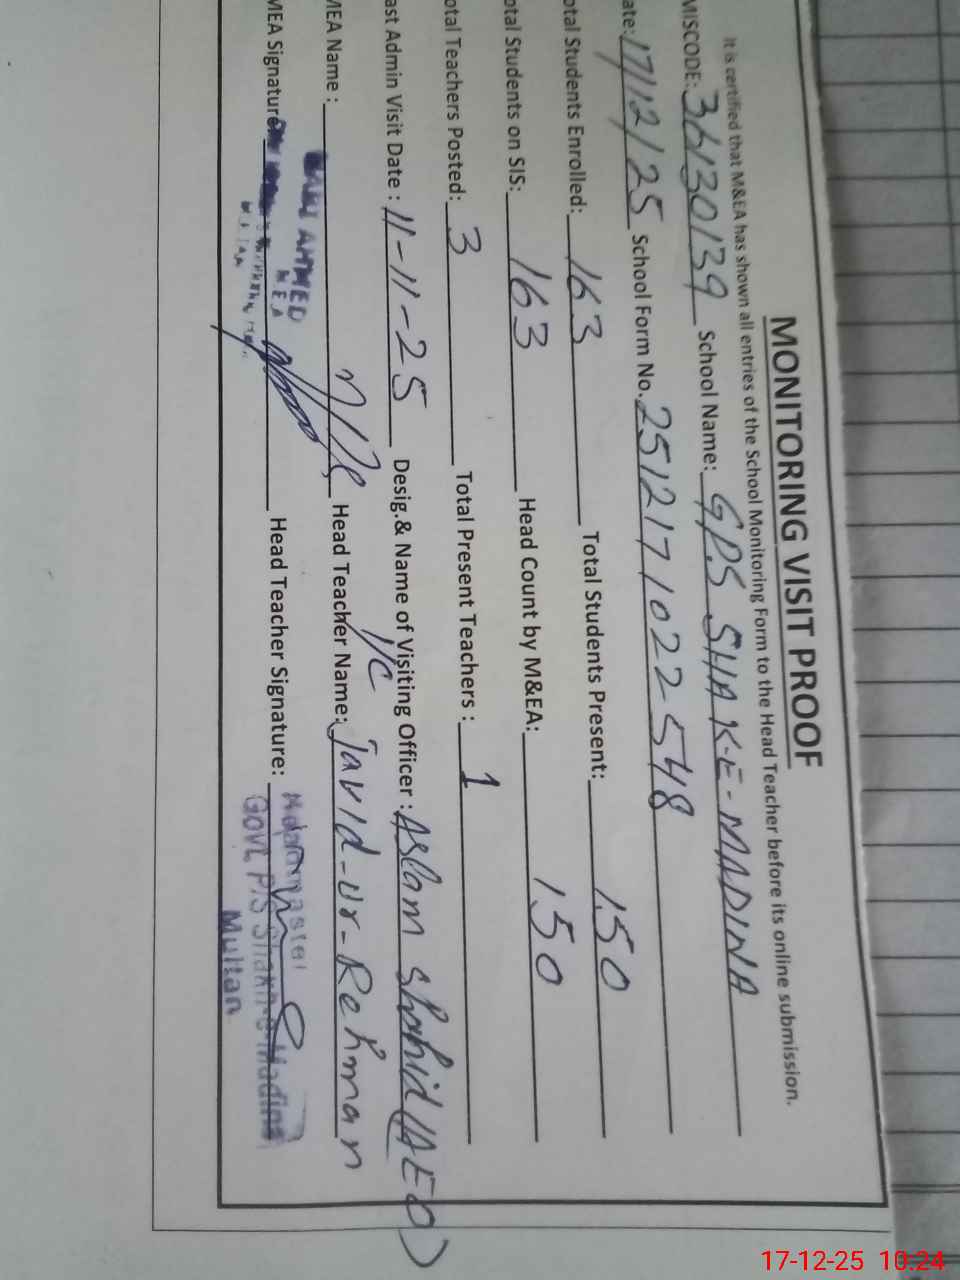 MONITORING VISIT PROOF
It is certified that M&EA has shown all entries of the School Monitoring Form to the Head Teacher before its online submission.
MISCODE: 36130139 School Name: GPS SHAK-E-MADINA
ate: 17/12/25 School Form No. 2512171022548
otal Students Enrolled: 163 Total Students Present: 150
otal Students on SIS: 163 Head Count by M&EA: 150
otal Teachers Posted: 3 Total Present Teachers : 1
ast Admin Visit Date : 11-11-25 Desig.& Name of Visiting Officer : Aslam Shahid (AEO)
I/C
MEA Name : Head Teacher Name: Javid-ur-Rehman
AHMED
MEA
MEA Signature Head Teacher Signature:
Headmaster
Govt. P/S Shak-e-Madina
Multan
17-12-25 10:24